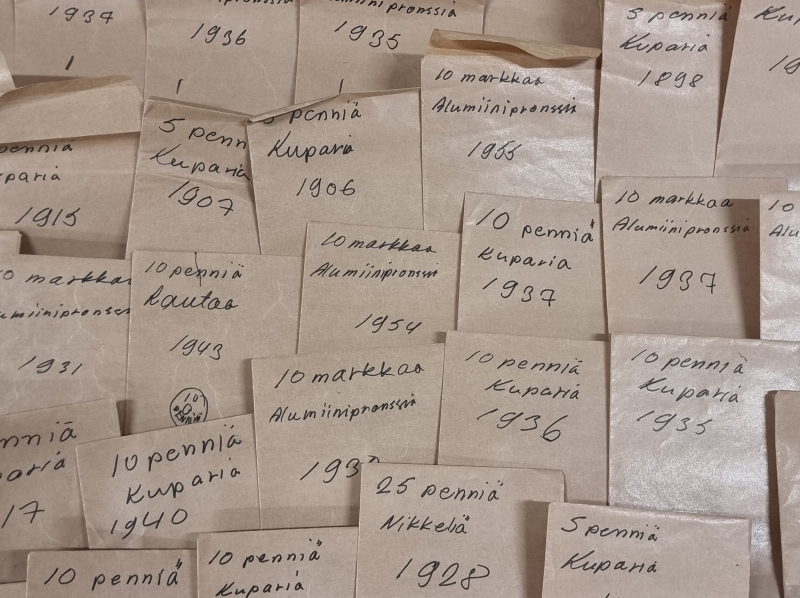 1937
1
1936
1
Alumiinipronssia
1935
1
10 markkaa
Alumiinipronssia
1955
5 penniä
Kuparia
1898
penniä
paria
1915
5 penn
Kuparia
1907
penniä
Kuparia
1906
10 markkaa
Alumiinipronssi
1954
10 penniä
Kuparia
1937
10 markkaa
Alumiinipronssia
1937
10
Alu
0 markkaa
umiinipronss
1931
10 penniä
Rautaa
1943
10
10 markkaa
Alumiinipronssia
193
10 penniä
Kuparia
1936
10 penniä
Kuparia
1935
nniä
paria
17
10 penniä
Kuparia
1940
25 penniä
Nikkeliä
1928
5 penniä
Kuparia
10 penniä
10 penniä
Kuparia